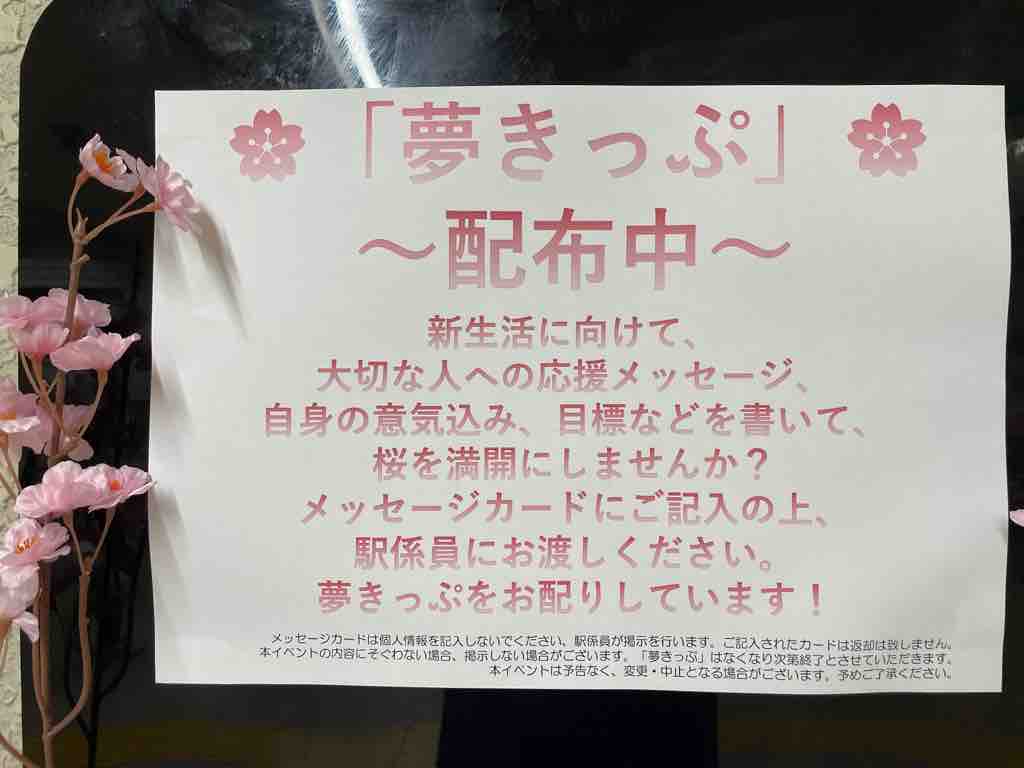 「夢きっぷ」
～配布中～
新生活に向けて、
大切な人への応援メッセージ、
自身の意気込み、目標などを書いて、
桜を満開にしませんか？
メッセージカードにご記入の上、
駅係員にお渡しください。
夢きっぷをお配りしています！
メッセージカードは個人情報を記入しないでください、駅係員が掲示を行います。ご記入されたカードは返却は致しません。
本イベントの内容にそぐわない場合、掲示しない場合がございます。「夢きっぷ」はなくなり次第終了とさせていただきます。
本イベントは予告なく、変更・中止となる場合がございます。予めご了承ください。